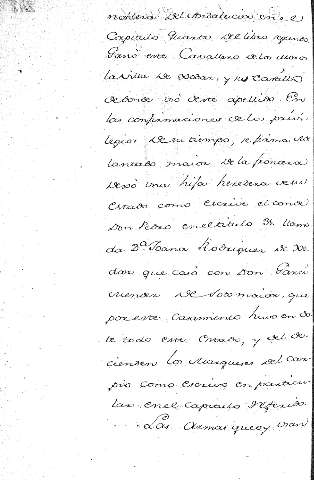 nobleza del Andalucia en el
Capitulo Quinto del libro segundo
Ganó este Cavallero de los moros
la Villa de Xodar, y su Castillo
de donde usó de este apellido. En
las confirmaciones de los privi
legios de su tiempo, se firma Ade
lantado maior de la frontera
Dexó una hija heredera de su
Estado como escrive el conde
Don Pedro en el titulo llama
da Da. Joana Rodriguez de Xo
dar que casó con Don Garci
mendez de Sotomaior, que
por este casamiento huvo en do
te todo este Estado, y del de
cienden los Marqueses del Car
pio como escrivo en particu
lar en el Capitulo referido
Las Armas que oy usan